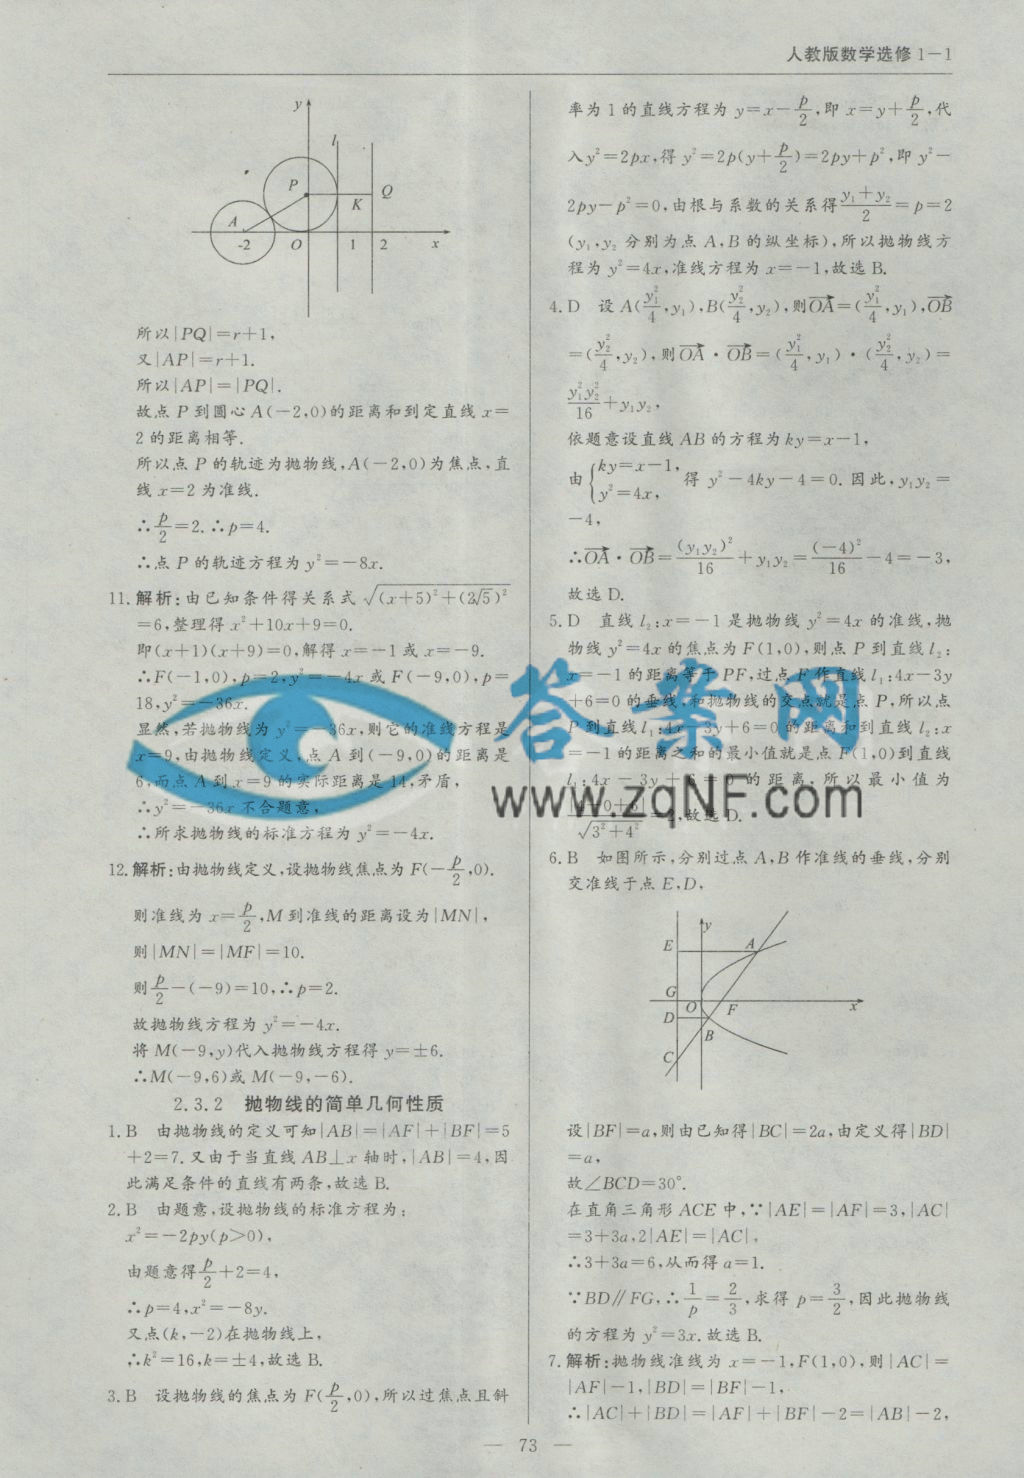 人教版数学选修 1－1
y
l
P
K
Q
A
-2
O
1
2
x
所以|PQ|=r+1,
又|AP|=r+1.
所以|AP|=|PQ|.
故点 P 到圆心 A(－2,0)的距离和到定直线 x=
2 的距离相等.
所以点 P 的轨迹为抛物线,A(－2,0)为焦点,直
线 x=2 为准线.
∴p/2=2.∴p=4.
∴点 P 的轨迹方程为 y²=－8x.
11.解析:由已知条件得关系式 √((x+5)²+(2√5)²)
=6,整理得 x²+10x+9=0.
即(x+1)(x+9)=0,解得 x=－1 或 x=－9.
∴F(－1,0),p=2,y²=－4x 或 F(－9,0),p=
18,y²=－36x.
显然,若抛物线为 y²=－36x,则它的准线方程是
x=9,由抛物线定义,点 A 到(－9,0)的距离是
6,而点 A 到 x=9 的实际距离是 14,矛盾,
∴y²=－36x 不合题意,
∴所求抛物线的标准方程为 y²=－4x.
12.解析:由抛物线定义,设抛物线焦点为 F(－p/2,0).
则准线为 x=p/2,M 到准线的距离设为|MN|,
则|MN|=|MF|=10.
则p/2－(－9)=10,∴p=2.
故抛物线方程为 y²=－4x.
将 M(－9,y)代入抛物线方程得 y=±6.
∴M(－9,6)或 M(－9,－6).
2.3.2 抛物线的简单几何性质
1.B 由抛物线的定义可知|AB|=|AF|+|BF|=5
+2=7.又由于当直线 AB⊥x 轴时,|AB|=4,因
此满足条件的直线有两条,故选 B.
2.B 由题意,设抛物线的标准方程为:
x²=－2py(p>0),
由题意得p/2+2=4,
∴p=4,x²=－8y.
又点(k,－2)在抛物线上,
∴k²=16,k=±4,故选 B.
3.B 设抛物线的焦点为 F(p/2,0),所以过焦点且斜
率为 1 的直线方程为 y=x－p/2,即 x=y+p/2,代
入y²=2px,得 y²=2p(y+p/2)=2py+p²,即 y²－
2py－p²=0,由根与系数的关系得(y₁+y₂)/2=p=2
(y₁,y₂ 分别为点 A,B 的纵坐标),所以抛物线方
程为 y²=4x,准线方程为 x=－1,故选 B.
4.D 设 A(y₁²/4,y₁),B(y₂²/4,y₂),则OA→=(y₁²/4,y₁),OB→
=(y₂²/4,y₂),则OA→·OB→=(y₁²/4,y₁)·(y₂²/4,y₂)=
y₁²y₂²/16+y₁y₂,
依题意设直线 AB 的方程为ky=x－1,
由{ky=x－1, y²=4x, 得 y²－4ky－4=0.因此,y₁y₂=
－4,
∴OA→·OB→=(y₁y₂)²/16+y₁y₂=(－4)²/16－4=－3,
故选 D.
5.D 直线 l₂:x=－1 是抛物线 y²=4x 的准线,抛
物线 y²=4x 的焦点为 F(1,0),则点 P 到直线 l₂:
x=－1 的距离等于 PF,过点 F 作直线 l₁:4x－3y
+6=0 的垂线,和抛物线的交点就是点 P,所以点
P 到直线 l₁:4x－3y+6=0 的距离和到直线 l₂:x
=－1 的距离之和的最小值就是点 F(1,0)到直线
l₁:4x－3y+6=0 的距离,所以最小值为
√(3²+4²) ,故选 D.
答案网
www.zqNF.com
6.B 如图所示,分别过点 A,B 作准线的垂线,分别
交准线于点 E,D,
y
E
A
G
O
F
x
D
B
C
设|BF|=a,则由已知得|BC|=2a,由定义得|BD|
=a,
故∠BCD=30°.
在直角三角形 ACE 中,∵|AE|=|AF|=3,|AC|
=3+3a,2|AE|=|AC|,
∴3+3a=6,从而得 a=1.
∵BD∥FG,∴1/p=2/3,求得 p=3/2,因此抛物线
的方程为 y²=3x.故选 B.
7.解析:抛物线准线为 x=－1,F(1,0),则|AC|=
|AF|－1,|BD|=|BF|－1,
∴|AC|+|BD|=|AF|+|BF|－2=|AB|－2,
— 73 —